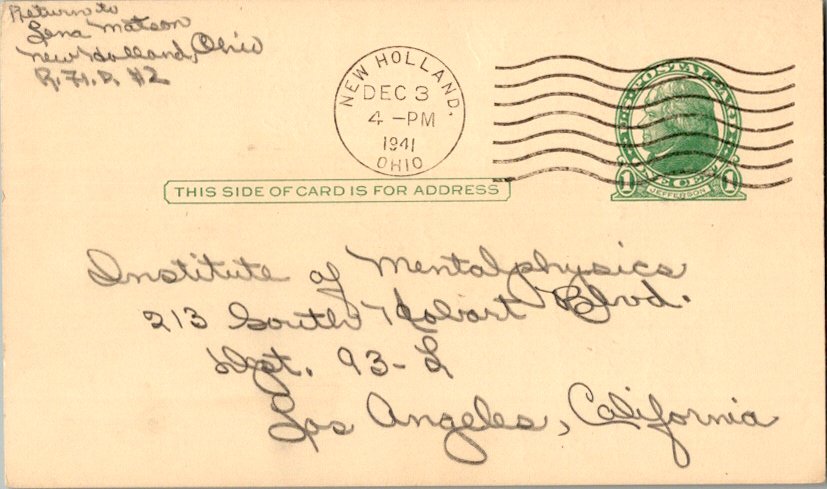 Return to
Lena Matson
New Holland, Ohio
R.F.D. #2
NEW HOLLAND.
DEC 3
4 - PM
1941
OHIO
U.S. POSTAL CARD
ONE CENT
1 JEFFERSON 1
THIS SIDE OF CARD IS FOR ADDRESS
Institute of Mentalphysics
213 South Hobart Blvd.
Dept. 93-L
Los Angeles, California